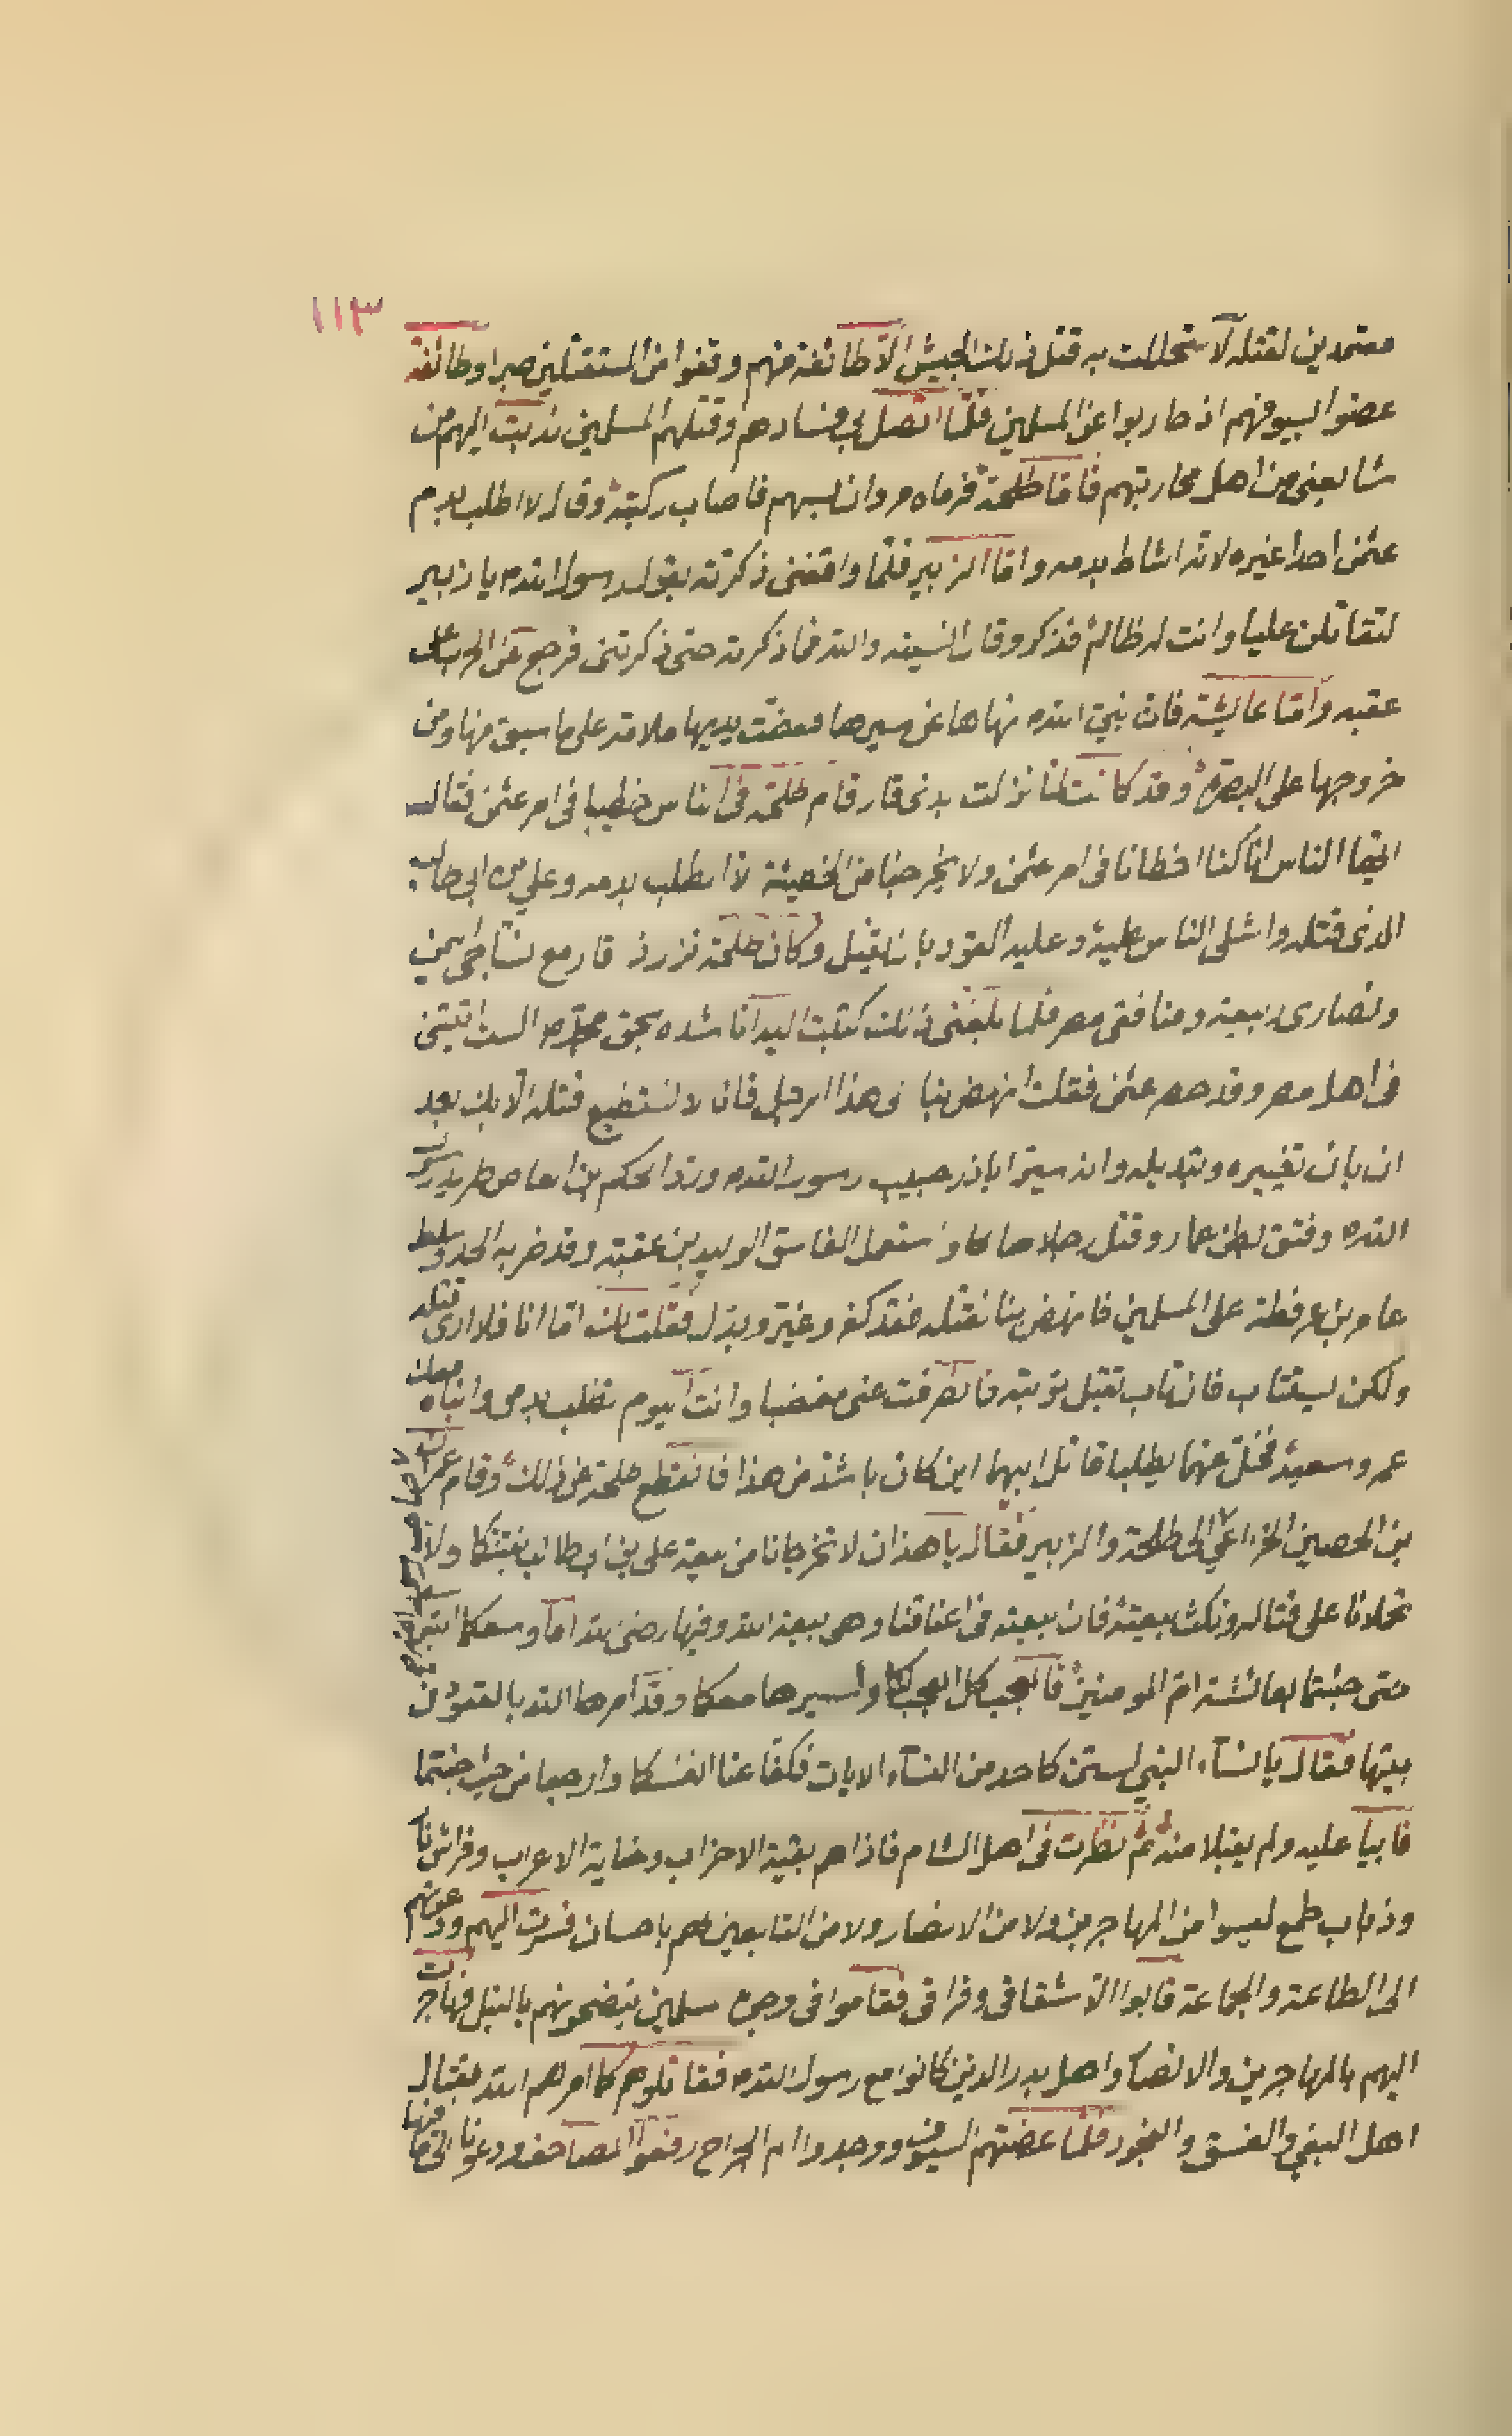 ١١٣
معتمدين لقتله لاستحللت به قتل ذلك الجيش الا طائفة منهم وقفوا من المستقتلين صبرا وطائفة
عضوا لسيوفهم اذ حاربوا عن المسلمين فلما اتصل بي فسادهم وقتلهم المسلمين ندبت اليهم من
شايعنى من اهل محاربتهم فاما طلحة فرماه مروان بسهم فاصاب ركبته وقال لا اطلب بدم
عثمن احدا غيره لانه اشاط بدمه واما الزبير فلما واقفنى ذكرته بقول رسول الله م يا زبير
لتقاتلن عليا وانت له ظالم فذكر وقال انسيته والله فما ذكرته حتى ذكرتنى فرجع عن الحرب على
عقبه واما عايشة فان نبي الله م نهاها عن مسيرها فعضت يديها ملامة على ما سبق منها ومن
خروجها على البصرة وقد كانت لما نزلت بذى قار قام طلحة فى الناس خطيبا فى امر عثمن فقال
ايها الناس انا كنا اخطانا فى امر عثمن ولا يخرجنا من الخطيئة الا الطلب بدمه وعلي بن ابى طالب
الذى قتله واشلى الناس عليه وعليه القود بان يقتل وكان طلحة نزل ذى قار مع نساجى يمن
ونصارى ربيعة ومنافقى مصر فلما بلغنى ذلك كتبت اليه اناشده بحق محمد م الست اتيتنى
فى اهل مصر وقد حصر عثمن فقلت انهض بنا الى هذا الرجل فانا لا نستطيع قتله الا بك بعد
ان بان تغييره وتبديله وانه سير اباذر حبيب رسول الله م ورد الحكم بن العاص طريد رسول
الله م وفتق بطن عمار وقتل رجلا صالحا واستعمل الفاسق الوليد بن عقبة وقد ضربه الحد وسلط
عامر بن عرفطة على المسلمين فانهض بنا نقتله فقد كفر وغير وبدل فقلت لك اما انا فلا ارى قتله
ولكن يستتاب فان تاب تقبل توبته فانصرفت عنى مغضبا وانت اليوم تطلب بدمى وابناه معك
عمرو وسعيد فخل عنهما يطلبا قاتل ابيهما اين كان باشد من هذا فانقطع طلحة عن ذلك وقام عمران
بن الحصين الخزاعي الى طلحة والزبير فقال يا هذان لا تخرجانا من بيعة على بن ابى طالب بفتنتكما ولا
تحملانا على قتاله ونكث بيعته فان بيعته فى اعناقنا وهى بيعة الله وفيها رضى لله اما وسعكما
حتى جئتما بعائشة ام المومنين فالعجب كل العجب لكما ولمسيرها معكما وقد امرها الله بالقعود فى
بيتها فقال يا نساء النبي لستن كاحد من النساء الايات فكفا عنا انفسكما وارجعا من حيث جئتما
فابيا عليه ولم يقبلا منه ثم نظرت فى اهل الشام فاذا هم بقية الاحزاب وحثاية الاعراب وفراش نار
وذباب طمع ليسوا من المهاجرين ولا من الانصار ولا من التابعين لهم باحسان فسرت اليهم ودعوتهم
الى الطاعة والجماعة فابوا الا شقاقى وفراقى فقاموا فى وجوه المسلمين ينضحونهم بالنبل فهاجرت
اليهم بالمهاجرين والانصار واهل بدر الذين كانوا مع رسول الله م فقاتلوهم كما امرهم الله بقتال
اهل البغي والفسق والفجور فلما عضتهم السيوف ووجدوا الم الجراح رفعوا المصاحف ودعونا الى ما فيها